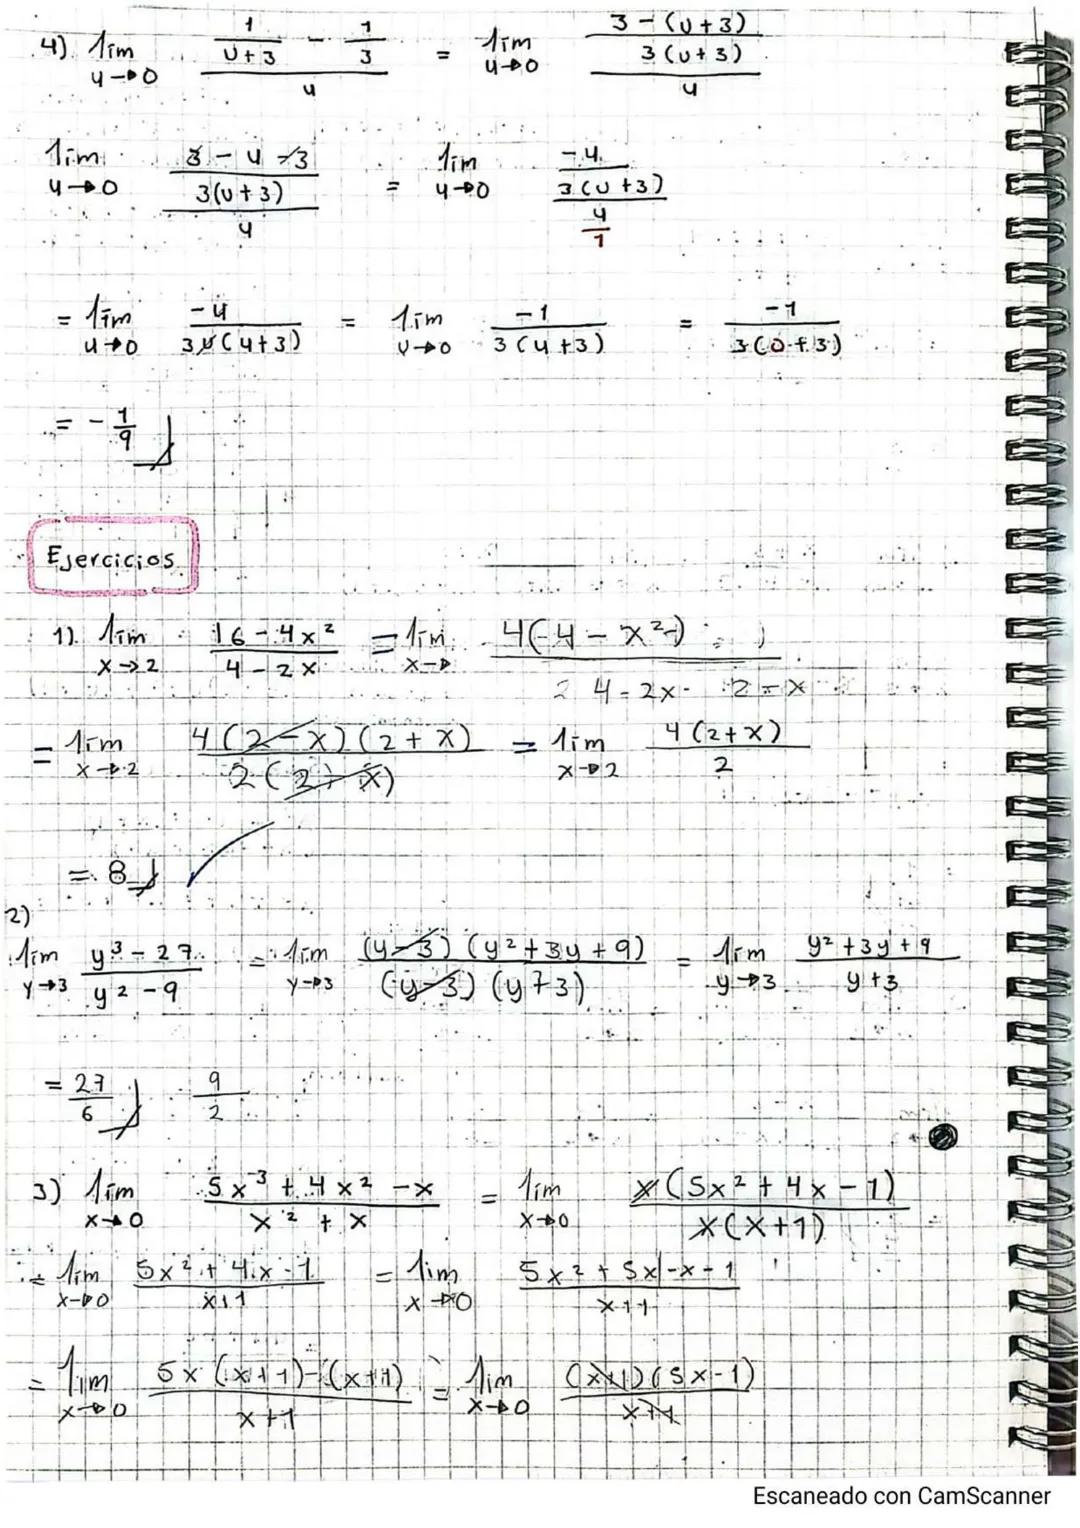 4) lim u→0 (1/(u+3) - 1/3)/u = lim u→0 ((3-(u+3))/(3(u+3)))/u
lim u→0 ((3-u-3)/(3(u+3)))/u = lim u→0 (-u/(3(u+3)))/(u/1)
= lim u→0 -u/(3u(u+3)) = lim u→0 -1/(3(u+3)) = -1/(3(0+3))
= -1/9
Ejercicios
1). lim x→2 (16-4x²)/(4-2x) = lim x→ 4(4-x²)
2 4-2x- 2-x
= lim x→2 4(2-x)(2+x)/(2(2-x)) = lim x→2 4(2+x)/2
= 8 ✓
2)
lim y→3 (y³-27)/(y²-9) = lim y→3 (y-3)(y²+3y+9)/((y-3)(y+3)) = lim y→3 (y²+3y+9)/(y+3)
= 27/6 9/2
3) lim x→0 (5x³+4x²-x)/(x²+x) = lim x→0 x(5x²+4x-1)/(x(x+1))
= lim x→0 (5x²+4x-1)/(x+1) = lim x→0 (5x²+5x-x-1)/(x+1)
= lim x→0 (5x(x+1)-(x+1))/(x+1) = lim x→0 (x+1)(5x-1)/(x+1)
Escaneado con CamScanner